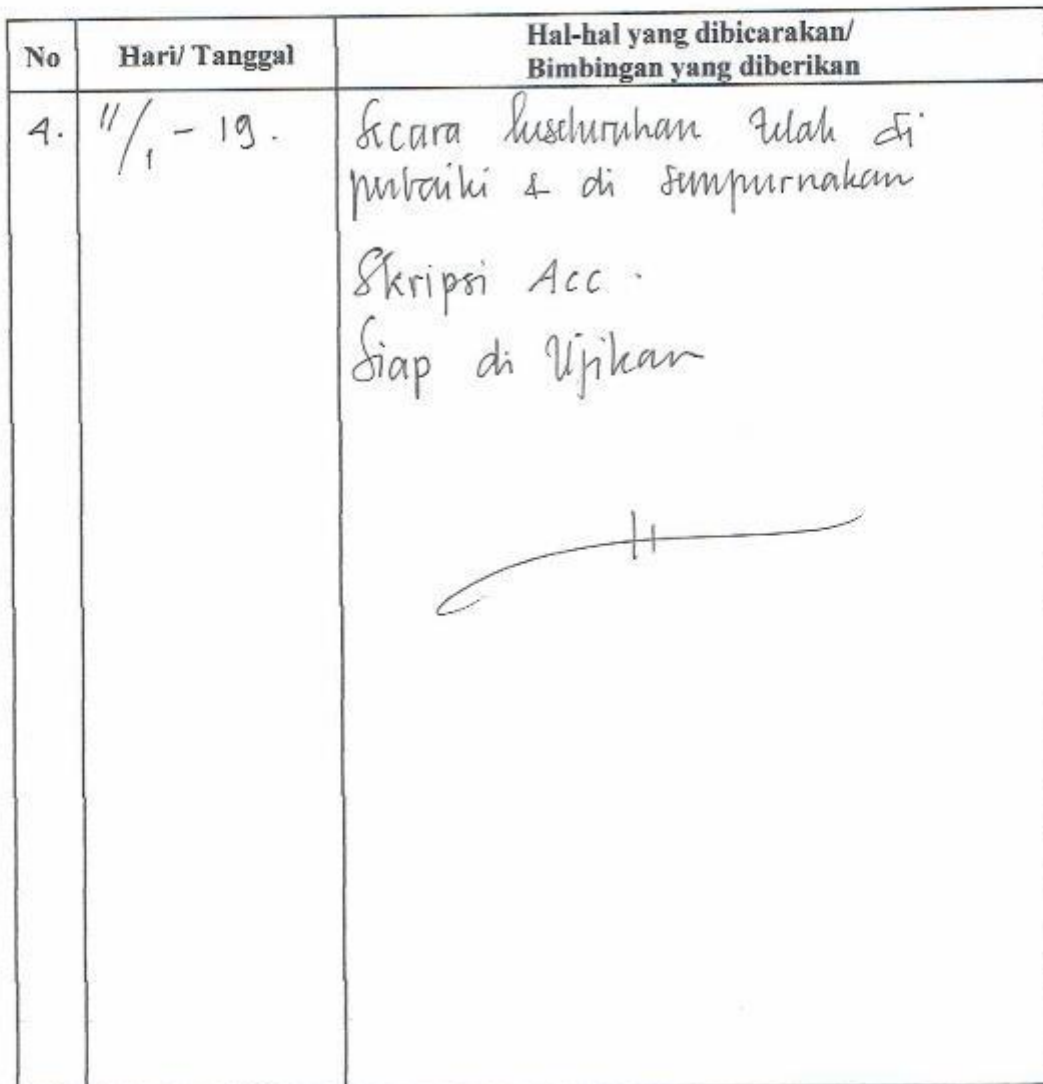 No
Hari/ Tanggal
Hal-hal yang dibicarakan/
Bimbingan yang diberikan
4.
11/1 - 19.
Secara keseluruhan telah di
perbaiki & di sempurnakan
Skripsi Acc.
Siap di Ujikan